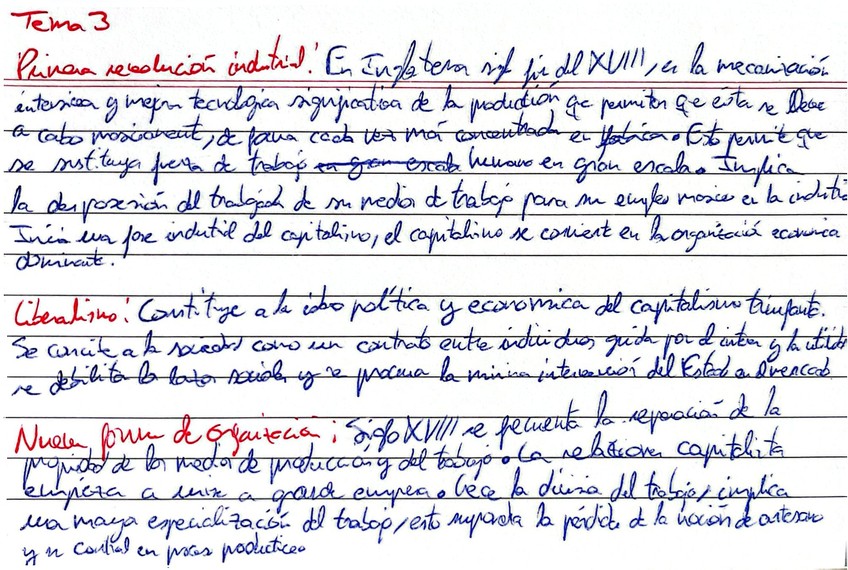 Tema 3
Primera revolución industrial: En Inglaterra siglo fin del XVIII, es la mecanización
intensiva y mejora tecnológica significativa de la producción que permiten que esta se lleve
a cabo masivament, de forma cada vez más concentrada en fábrica. Esto permite que
se sustituya fuerza de trabajo en gran escala humano en gran escala. Implica
la desposesión del trabajador de su medios de trabajo para su empleo masivo en la industria
Inicia una fase industrial del capitalismo, el capitalismo se convierte en la organización economica
dominante.
Liberalismo: Constituye a la idea política y economica del capitalismo triunfante.
Se concibe a la sociedad como un contrato entre individuos guida por el interes y la utilidad
se debilita los lazos sociales y se procura la minima intervención del Estado en mercado
Nueva forma de organización: Siglo XVIII se frecuenta la separación de la
propiedad de los medios de producción y del trabajo. La relaciones capitalista
empieza a unirse a grande empresa. Crece la division del trabajo, implica
una mayor especialización del trabajo, esto suponeta la pérdida de la noción de artesano
y su control en proceso productivo